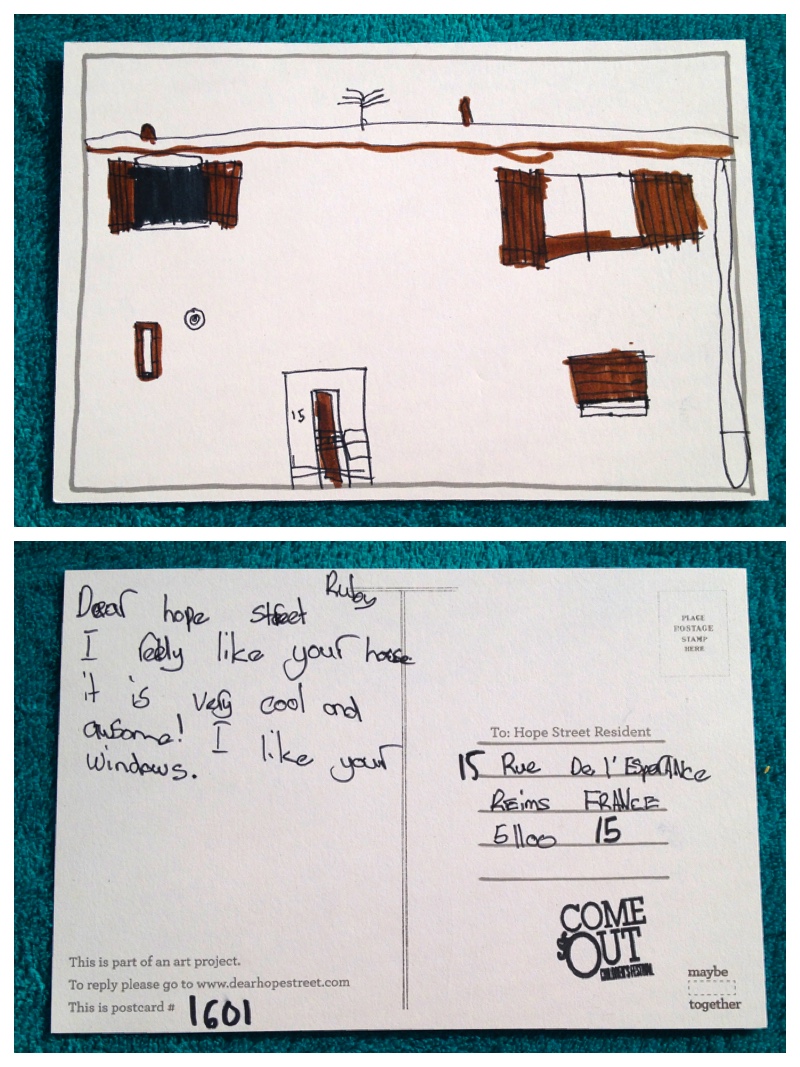 15
Ruby
Dear hope street
I reely like your house
it is very cool and
awsome! I like your
windows.
PLACE
POSTAGE
STAMP
HERE
To: Hope Street Resident
15 Rue De l'EsperANce
REims FRANCE
51100 15
COME
OUT
CHILDREN'S FESTIVAL
This is part of an art project.
To reply please go to www.dearhopestreet.com
This is postcard # 1601
maybe
together